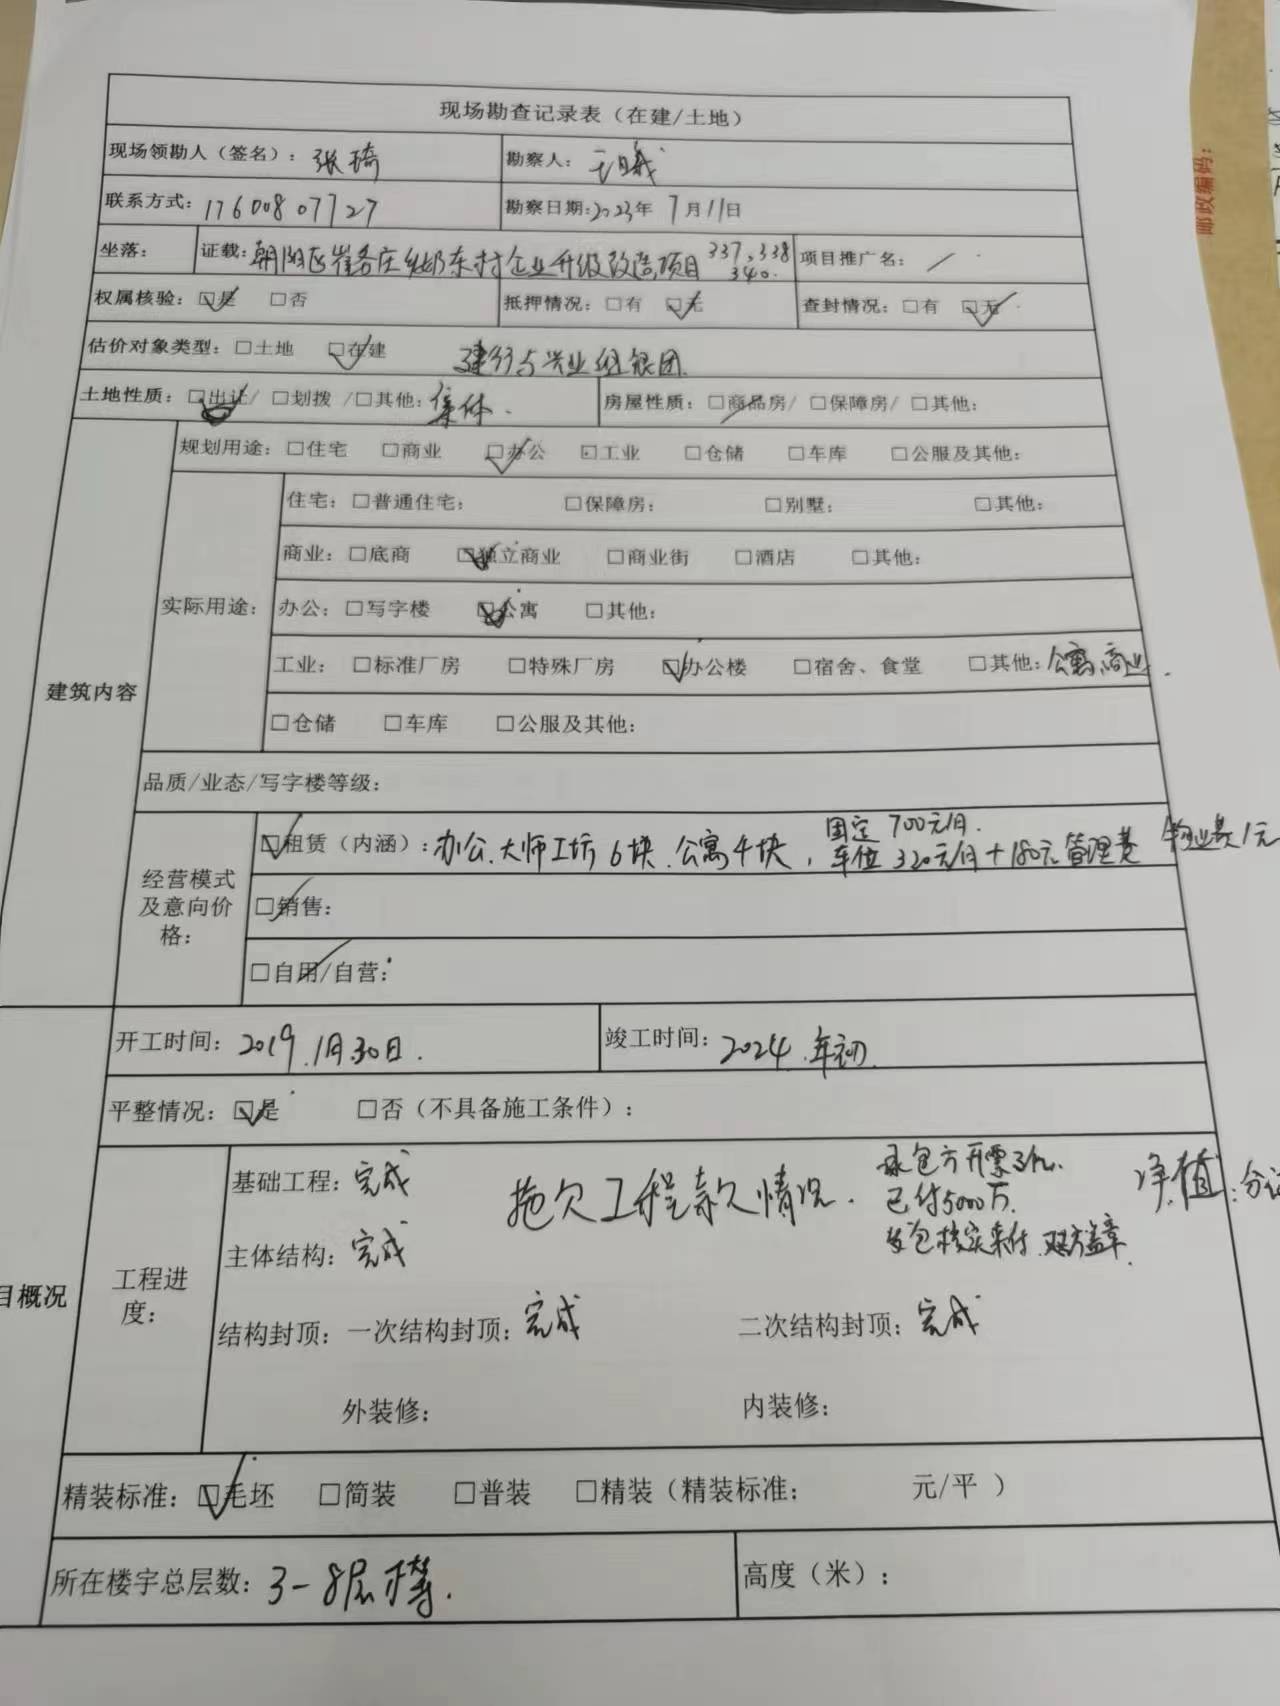 现场勘查记录表（在建/土地）
现场领勘人（签名）：张琦 勘察人：王曦
联系方式：17600807727 勘察日期：2023年7月11日
坐落： 证载：朝阳区崔各庄乡奶东村企业升级改造项目 337、338 340. 项目推广名：/
权属核验：☑是 □否 抵押情况：□有 ☑无 查封情况：□有 ☑无
估价对象类型：□土地 ☑在建 建行与兴业组银团
土地性质：□出让/ □划拨 /□其他：集体. 房屋性质：□商品房/ □保障房/ □其他：
建筑内容
规划用途：□住宅 □商业 ☑办公 □工业 □仓储 □车库 □公服及其他：
实际用途：
住宅：□普通住宅； □保障房； □别墅； □其他：
商业：□底商 ☑独立商业 □商业街 □酒店 □其他：
办公：□写字楼 ☑公寓 □其他：
工业： □标准厂房 □特殊厂房 ☑办公楼 □宿舍、食堂 □其他：公寓、商业.
□仓储 □车库 □公服及其他：
品质/业态/写字楼等级：
经营模式及意向价格：
☑租赁（内涵）：办公、大师工坊6块、公寓4块， 固定 700元/月. 车位 320元/月+180元管理费 物业费1元
□销售：
□自用/自营：
开工时间：2019.1月30日. 竣工时间：2024.年初.
平整情况：☑是 □否（不具备施工条件）：
目概况
工程进度：
基础工程：完成 拖欠工程款情况. 承包方开票3亿. 净值：分
已付5000万.
主体结构：完成 双方盖章.
结构封顶：一次结构封顶：完成 二次结构封顶：完成
外装修： 内装修：
精装标准：☑毛坯 □简装 □普装 □精装（精装标准： 元/平 ）
所在楼宇总层数：3-8层楼. 高度（米）：
邮政编码：